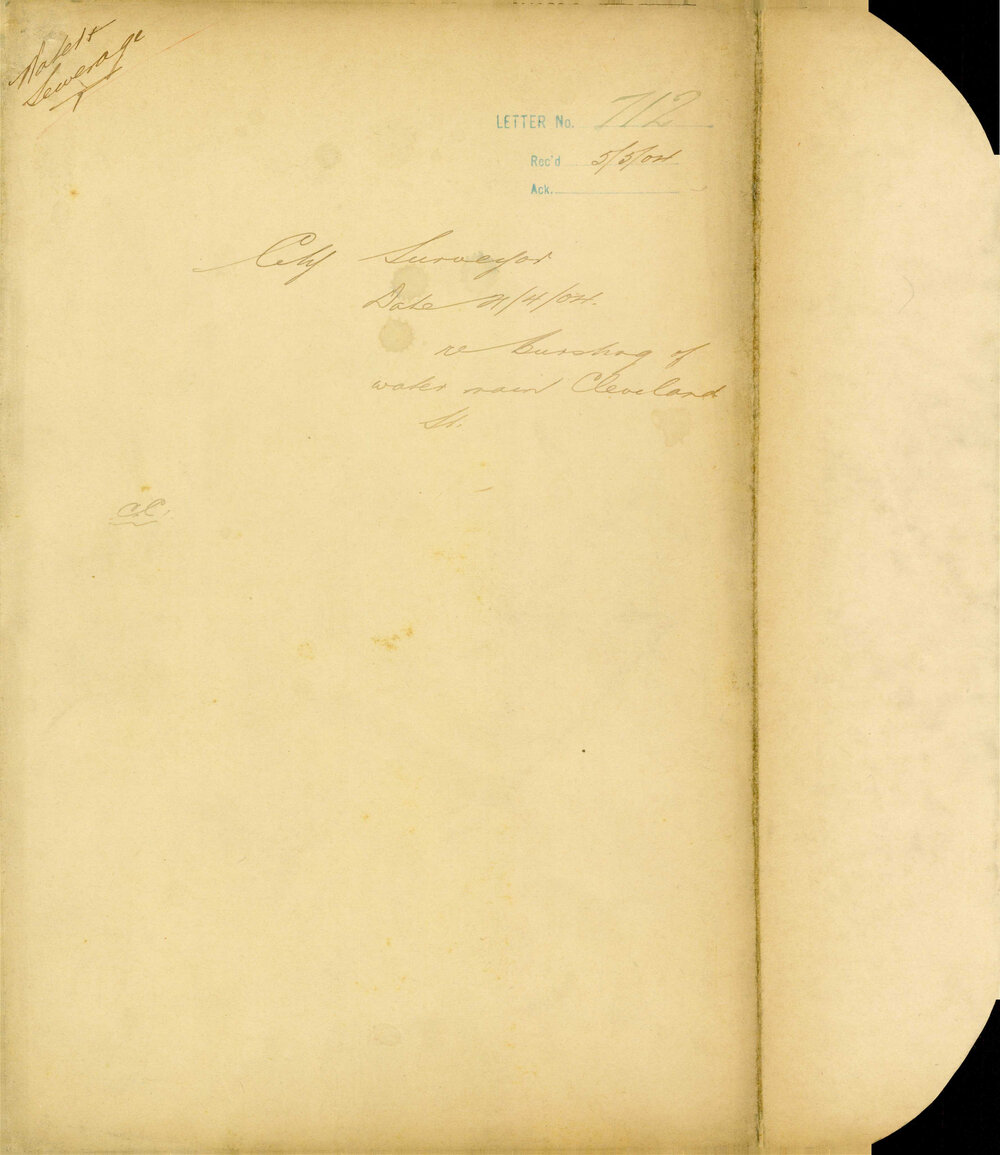 Water &
Sewerage
LETTER No. 712
Rec'd 5/5/04
Ack.
City Surveyor
Date 21/4/04.
re bursting of
water main Cleveland
St.